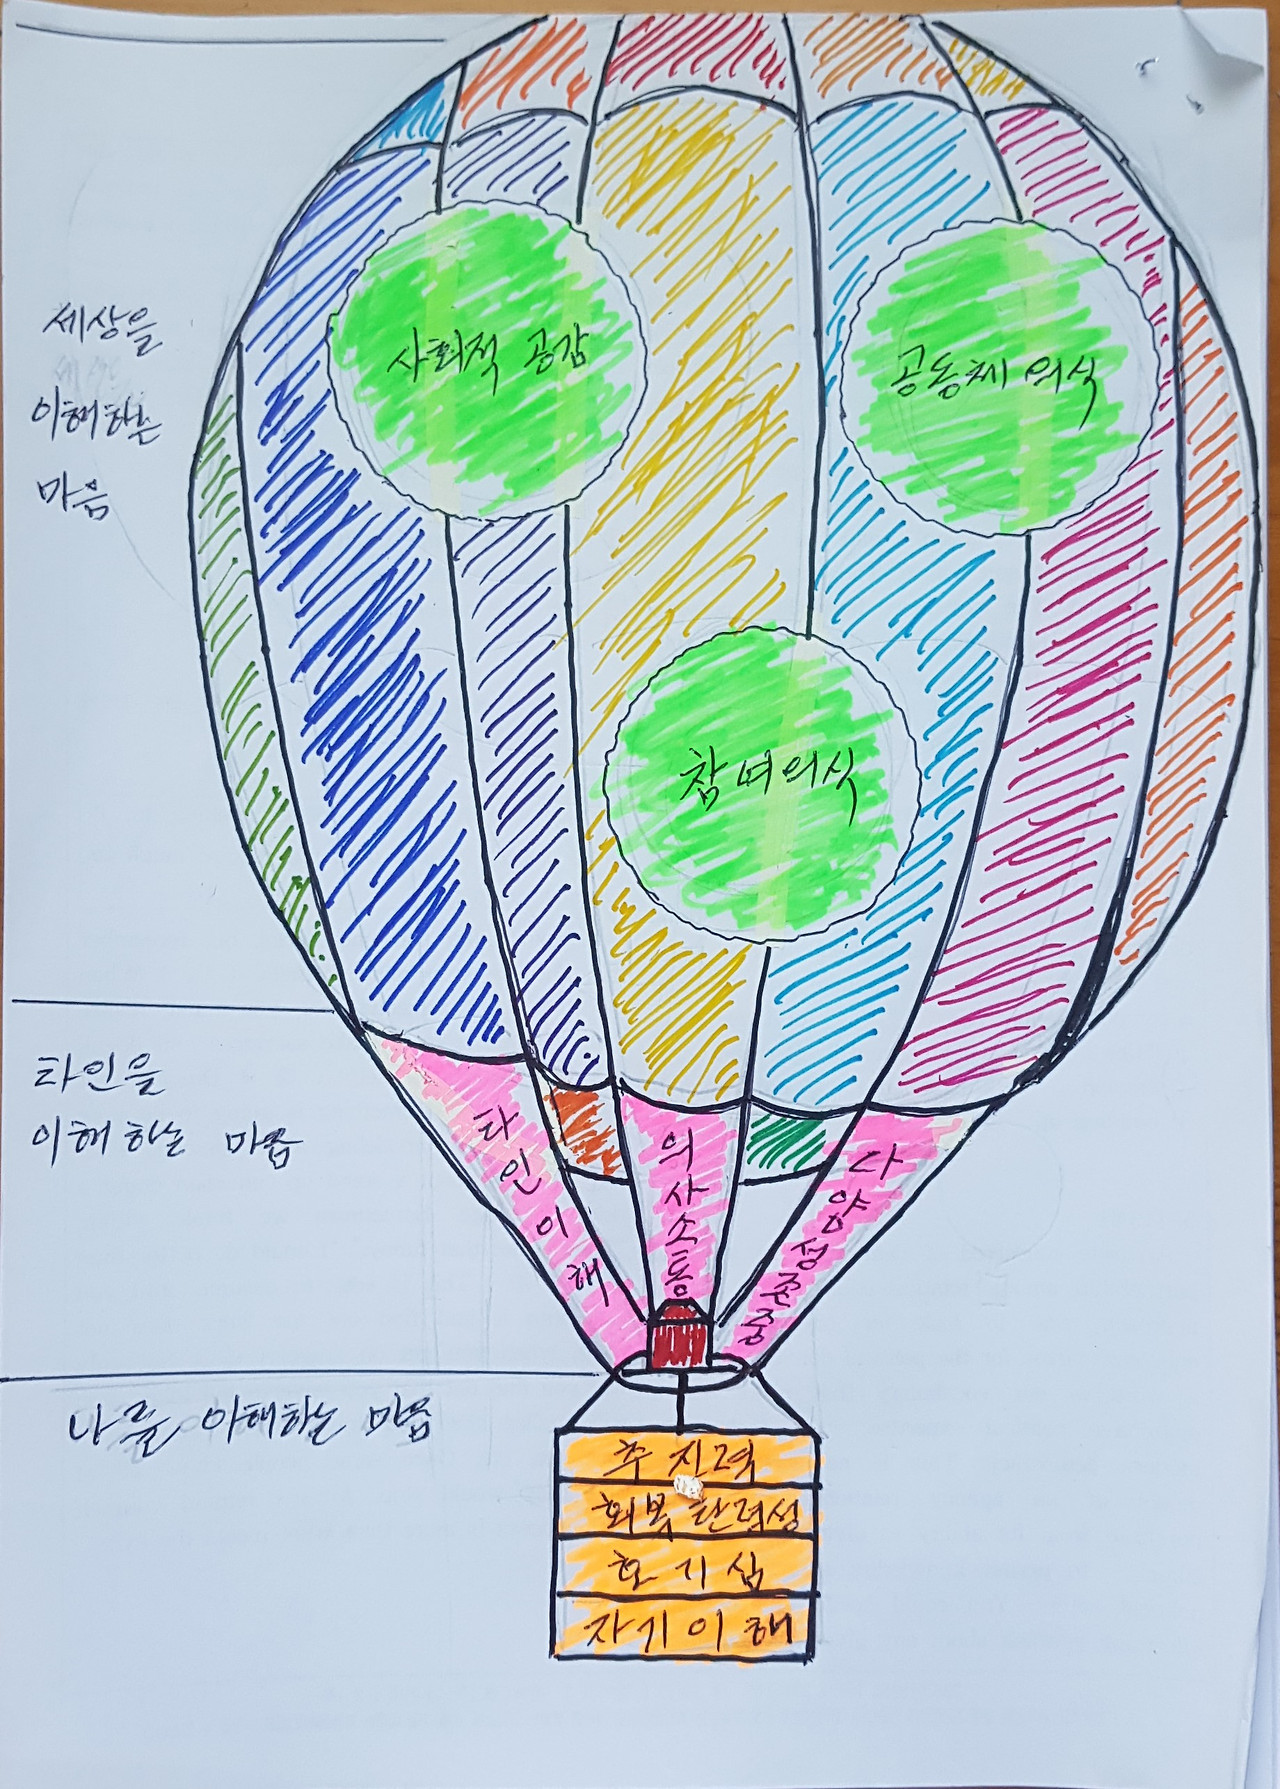 세상을
이해하는
마음
사회적 공감
공동체 의식
참여의식
타인을
이해하는 마음
타인이해
의사소통
다양성존중
나를 이해하는 마음
추진력
회복탄력성
호기심
자기이해